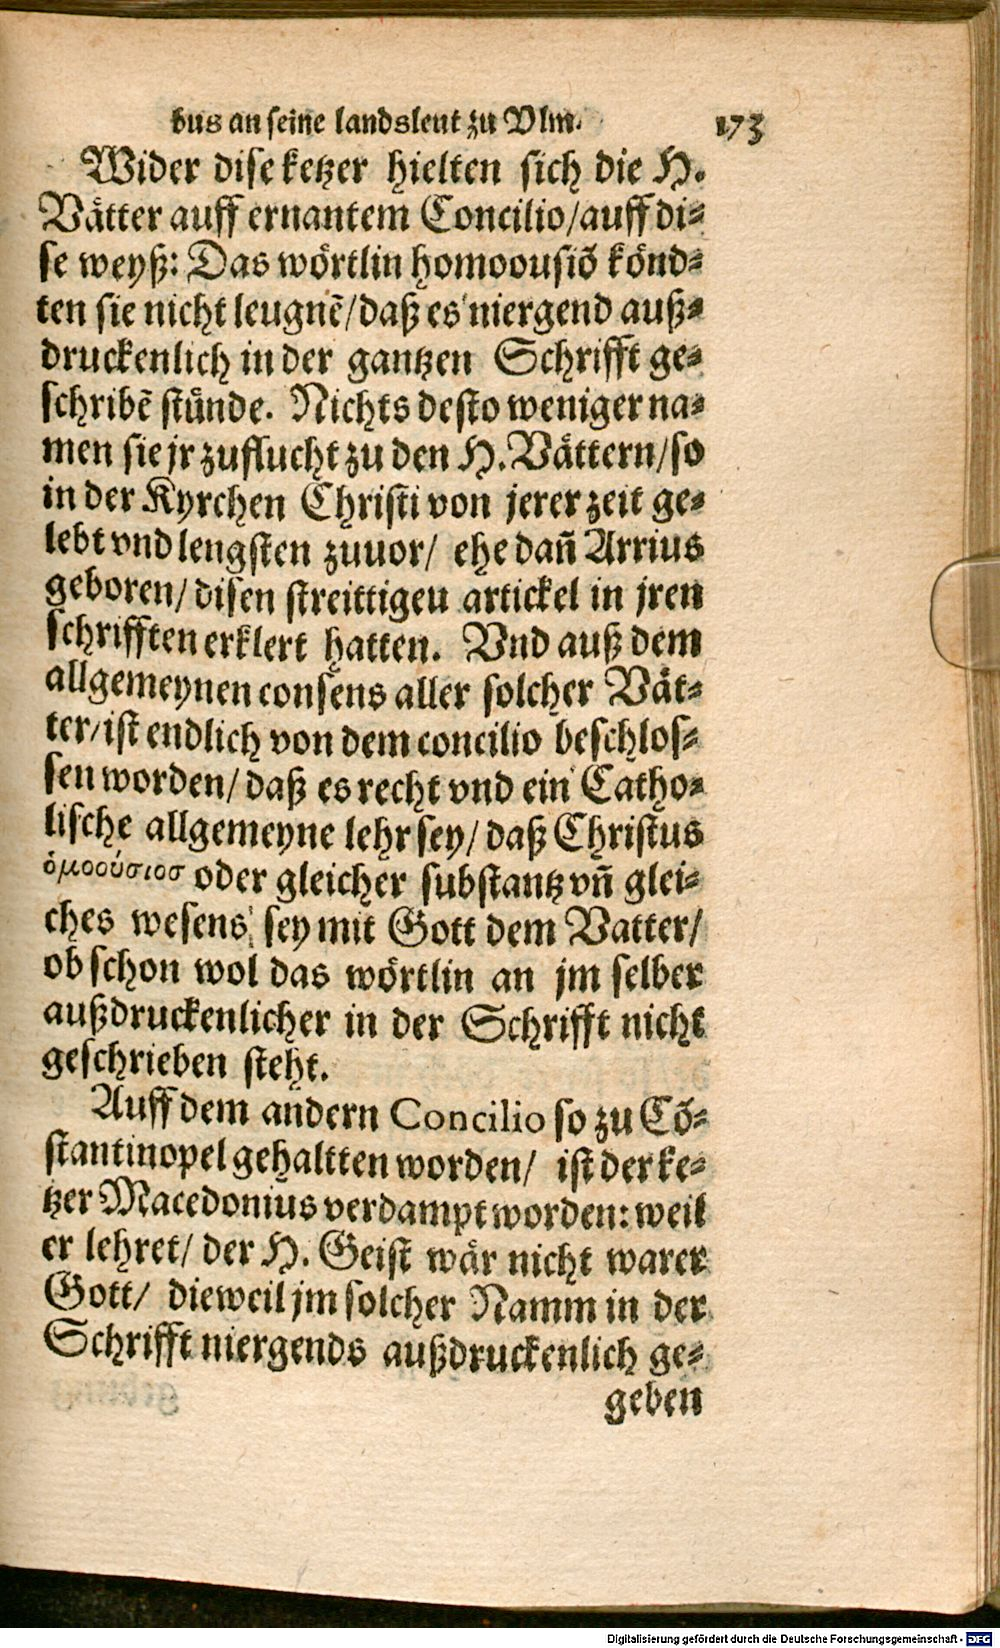 bus an seine landsleut zu Vlm. 173
Wider dise ketzer hielten sich die H.
Vätter auff ernantem Concilio/auff di⸗
se weyß: Das wörtlin homoousiō könd⸗
ten sie nicht leugnē/daß es niergend auß⸗
druckenlich in der gantzen Schrifft ge⸗
schribē stünde. Nichts desto weniger na⸗
men sie jr zuflucht zu den H. Vättern/so
in der Kyrchen Christi von jerer zeit ge⸗
lebt vnd lengsten zuuor/ ehe dañ Arrius
geboren/ disen streittigeu artickel in jren
schrifften erklert hatten. Vnd auß dem
allgemeynen consens aller solcher Vät⸗
ter/ist endlich von dem concilio beschlos⸗
sen worden/ daß es recht vnd ein Catho⸗
lische allgemeyne lehr sey/ daß Christus
ὁμοούσιοσ oder gleicher substantz vñ glei⸗
ches wesens sey mit Gott dem Vatter/
ob schon wol das wörtlin an jm selber
außdruckenlicher in der Schrifft nicht
geschrieben steht.
Auff dem andern Concilio so zu Cō⸗
stantinopel gehaltten worden/ ist der ke⸗
tzer Macedonius verdampt worden: weil
er lehret/ der H. Geist wär nicht warer
Gott/ dieweil jm solcher Namm in der
Schrifft niergends außdruckenlich ge⸗
geben
Digitalisierung gefördert durch die Deutsche Forschungsgemeinschaft - DFG